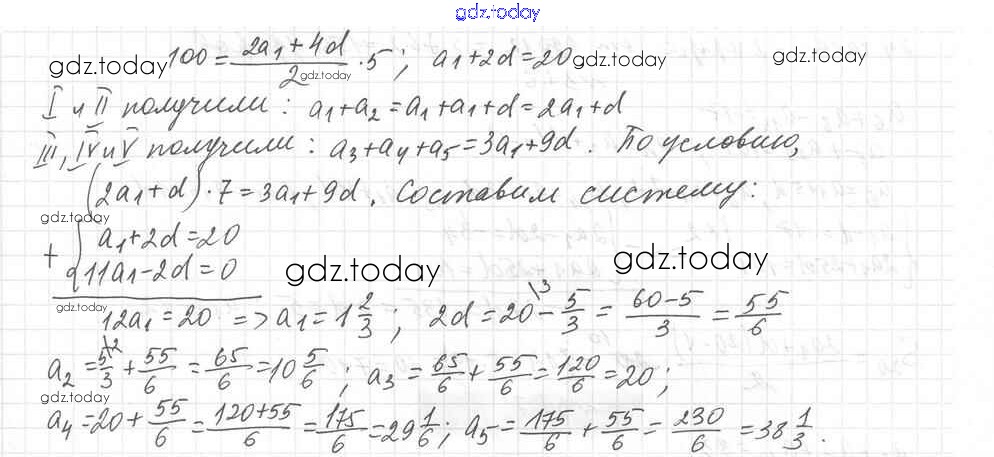 gdz.today
gdz.today 100 = (2a₁ + 4d)/2 gdz.today · 5; a₁ + 2d = 20 gdz.today gdz.today
I и II получили: a₁ + a₂ = a₁ + a₁ + d = 2a₁ + d
III, IV и V получили: a₃ + a₄ + a₅ = 3a₁ + 9d. По условию,
(2a₁ + d) · 7 = 3a₁ + 9d. Составим систему:
gdz.today
+ { a₁ + 2d = 20
11a₁ - 2d = 0 gdz.today gdz.today
gdz.today
12a₁ = 20 => a₁ = 1 2/3; 2d = 20\3 - 5/3 = (60-5)/3 = 55/6
a₂ = 5\2/3 + 55/6 = 65/6 = 10 5/6; a₃ = 65/6 + 55/6 = 120/6 = 20;
gdz.today
a₄ = 20 + 55/6 = (120+55)/6 = 175/6 = 29 1/6; a₅ = 175/6 + 55/6 = 230/6 = 38 1/3.